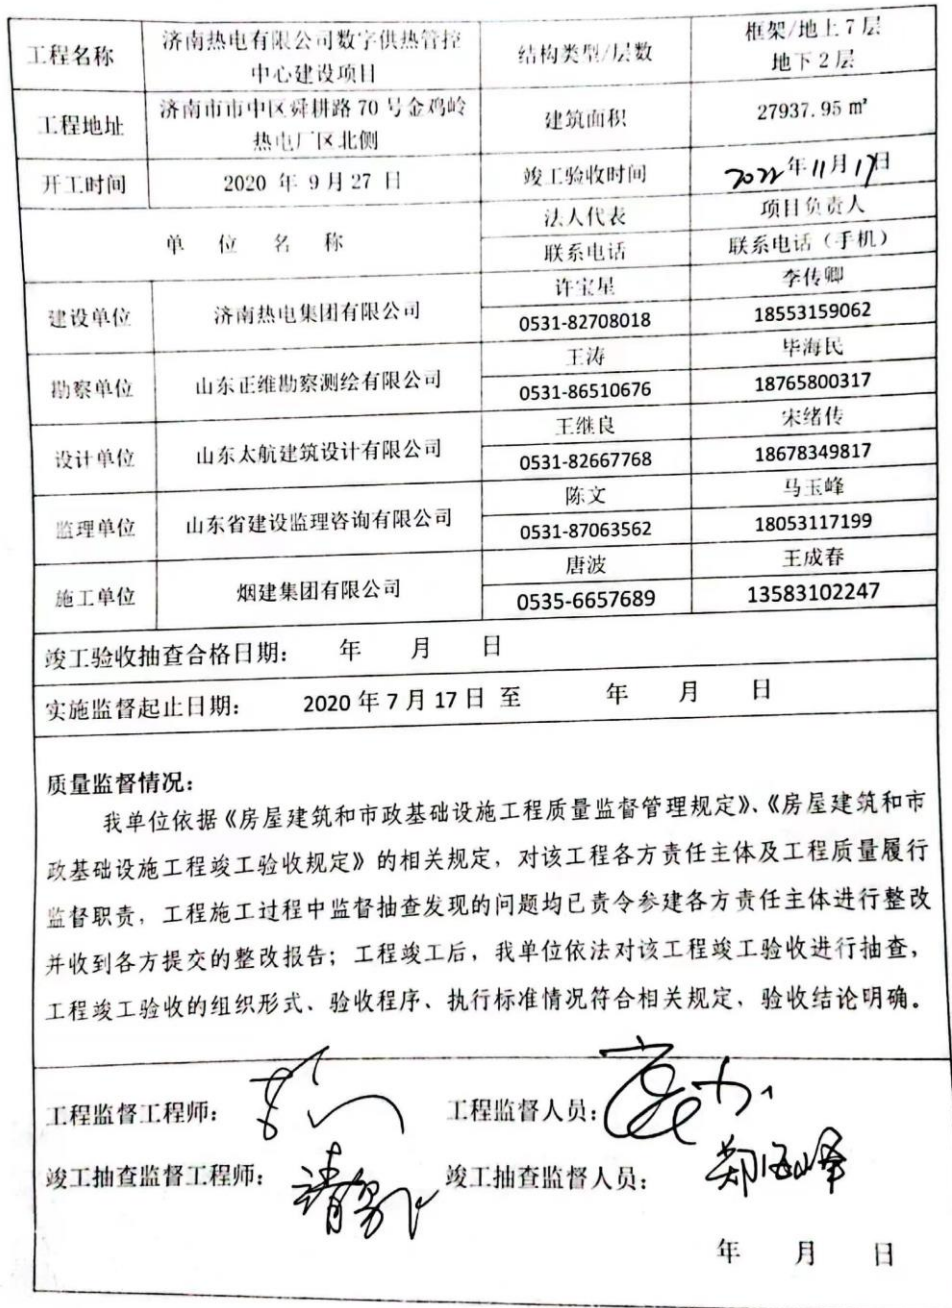 工程名称
济南热电有限公司数字供热管控
中心建设项目
结构类型/层数
框架/地上7层
地下2层
工程地址
济南市市中区舜耕路70号金鸡岭
热电厂区北侧
建筑面积
27937.95 ㎡
开工时间
2020 年 9 月 27 日
竣工验收时间
2022年11月17日
单 位 名 称
法人代表
项目负责人
联系电话
联系电话（手机）
建设单位
济南热电集团有限公司
许宝星
李传卿
0531-82708018
18553159062
勘察单位
山东正维勘察测绘有限公司
王涛
毕海民
0531-86510676
18765800317
设计单位
山东太航建筑设计有限公司
王继良
宋绪传
0531-82667768
18678349817
监理单位
山东省建设监理咨询有限公司
陈文
马玉峰
0531-87063562
18053117199
施工单位
烟建集团有限公司
唐波
王成春
0535-6657689
13583102247
竣工验收抽查合格日期： 年 月 日
实施监督起止日期： 2020 年 7 月 17 日 至 年 月 日
质量监督情况：
我单位依据《房屋建筑和市政基础设施工程质量监督管理规定》、《房屋建筑和市
政基础设施工程竣工验收规定》的相关规定，对该工程各方责任主体及工程质量履行
监督职责，工程施工过程中监督抽查发现的问题均已责令参建各方责任主体进行整改
并收到各方提交的整改报告；工程竣工后，我单位依法对该工程竣工验收进行抽查，
工程竣工验收的组织形式、验收程序、执行标准情况符合相关规定、验收结论明确。
工程监督工程师：
工程监督人员：
竣工抽查监督工程师：
竣工抽查监督人员：
年 月 日